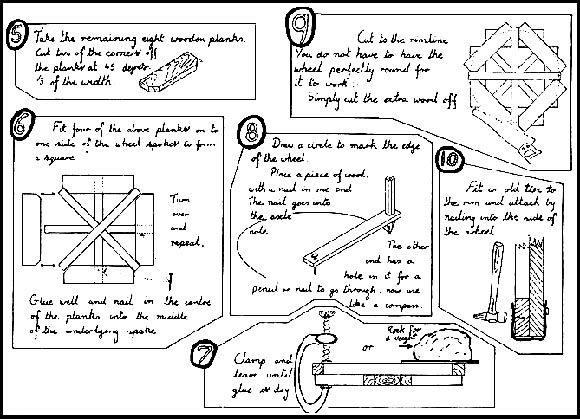 5
Take the remaining eight wooden planks.
Cut two of the corners off
the planks at 45 degrees.
⅓ of the width
6
Fit four of the above planks on to
one side of the wheel spokes to form
a square
Turn
over
and
repeat.
Glue well and nail in the centre
of the planks into the middle
of the underlying spoke
7
Clamp and
leave until
glue is dry
or
Rock for
a weight
8
Draw a circle to mark the edge
of the wheel.
Place a piece of wood,
with a nail in one end
The nail goes into
the axle
hole.
The other
end has a
hole in it for a
pencil or nail to go through. now use
like a compass.
9
Cut to the rimline
You do not have to have the
wheel perfectly round for
it to work.
Simply cut the extra wood off
10
Fit an old tire to
the rim and attach by
nailing into the side of
the wheel